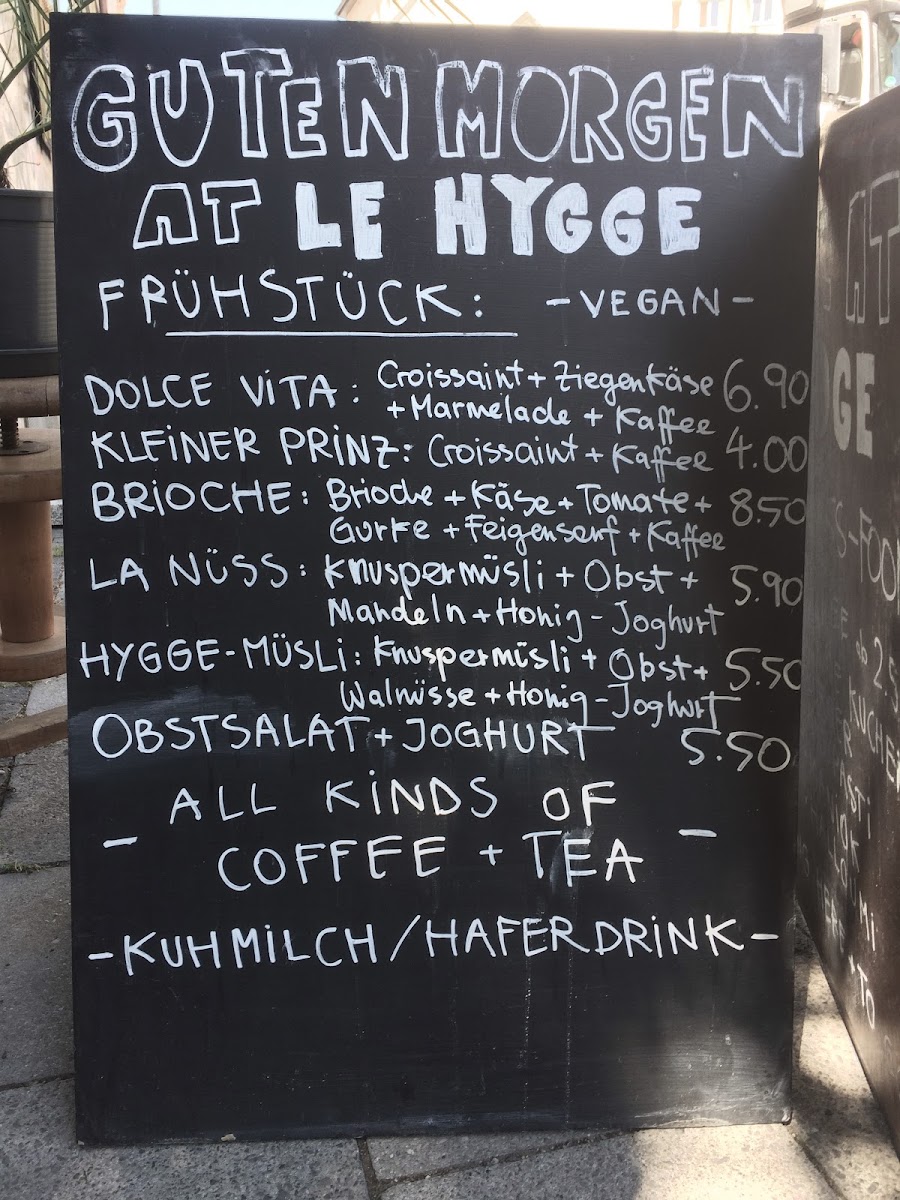 GUTEN MORGEN
AT LE HYGGE
FRÜHSTÜCK: - VEGAN -
DOLCE VITA: Croissaint + Ziegenkäse 6.90
+ Marmelade + Kaffee
KLEINER PRINZ: Croissaint + Kaffee 4.00
BRIOCHE: Brioche + Käse + Tomate + 8.50
Gurke + Feigensenf + Kaffee
LA NÜSS: Knuspermüsli + Obst + 5.90
Mandeln + Honig - Joghurt
HYGGE-MÜSLI: Knuspermüsli + Obst + 5.50
Walnüsse + Honig - Joghurt
OBSTSALAT + JOGHURT 5.50
- ALL KINDS OF
COFFEE + TEA -
- KUHMILCH / HAFERDRINK -
AT
GE